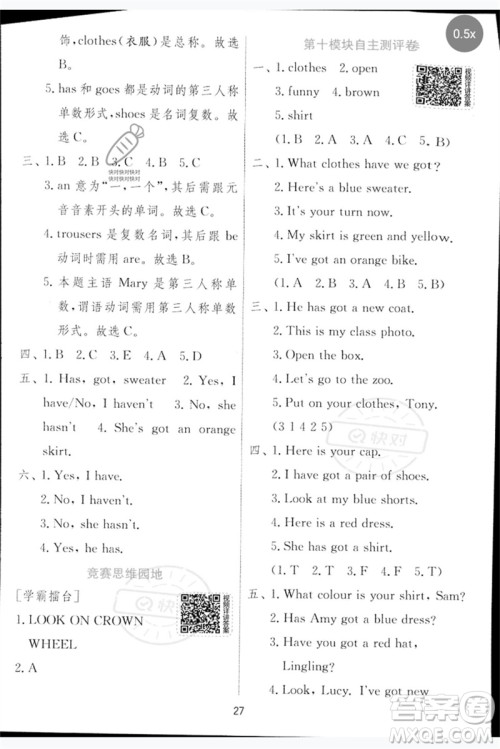 饰，clothes(衣服)是总称。故选B。
5. has和goes都是动词的第三人称单数形式，shoes是名词复数。故选C。
三、1. B 2. B 3. C 4. B 5. C
3. an意为“一，一个”，其后需跟元音音素开头的单词。故选C。
4. trousers是复数名词，所以be动词需用are。故选B。
5. 本题主语Mary是第三人称单数，谓语动词需用第三人称单数形式。故选C。
四、1. B 2. C 3. E 4. A 5. D
五、1. Has, got, sweater 2. Yes, I have/No, I haven't 3. No, she hasn't 4. She has got an orange skirt.
六、1. Yes, I have.
2. No, I haven't.
3. No, she hasn't.
4. Yes, he has.
竞赛思维园地
[学霸擂台]
1. LOOK ON CROWN WHEEL
2. A
视频详讲答案
快对快对快对
快对快对快对
0.5x
第十模块自主测评卷
一、1. clothes 2. open
3. funny 4. brown
5. shirt
(1. B 2. A 3. A 4. A 5. B)
视频详讲答案
二、1. What clothes have we got?
2. Here's a blue sweater.
3. It's your turn now.
4. My skirt is green and yellow.
5. I've got an orange bike.
(1. B 2. B 3. B 4. A 5. B)
三、1. He has got a new coat.
2. This is my class photo.
3. Open the box.
4. Let's go to the zoo.
5. Put on your clothes, Tony.
(3 1 4 2 5)
快对
四、1. Here is your cap.
2. I have got a pair of shoes.
3. Look at my blue shorts.
4. Here is a red dress.
(1. T 2. F 3. F 4. T)
五、1. What colour is your shirt, Sam?
2. Has Amy got a blue dress?
3. Have you got a red hat, Lingling?
4. Look, Lucy. I've got new
27
答案圈
MXQE.COM